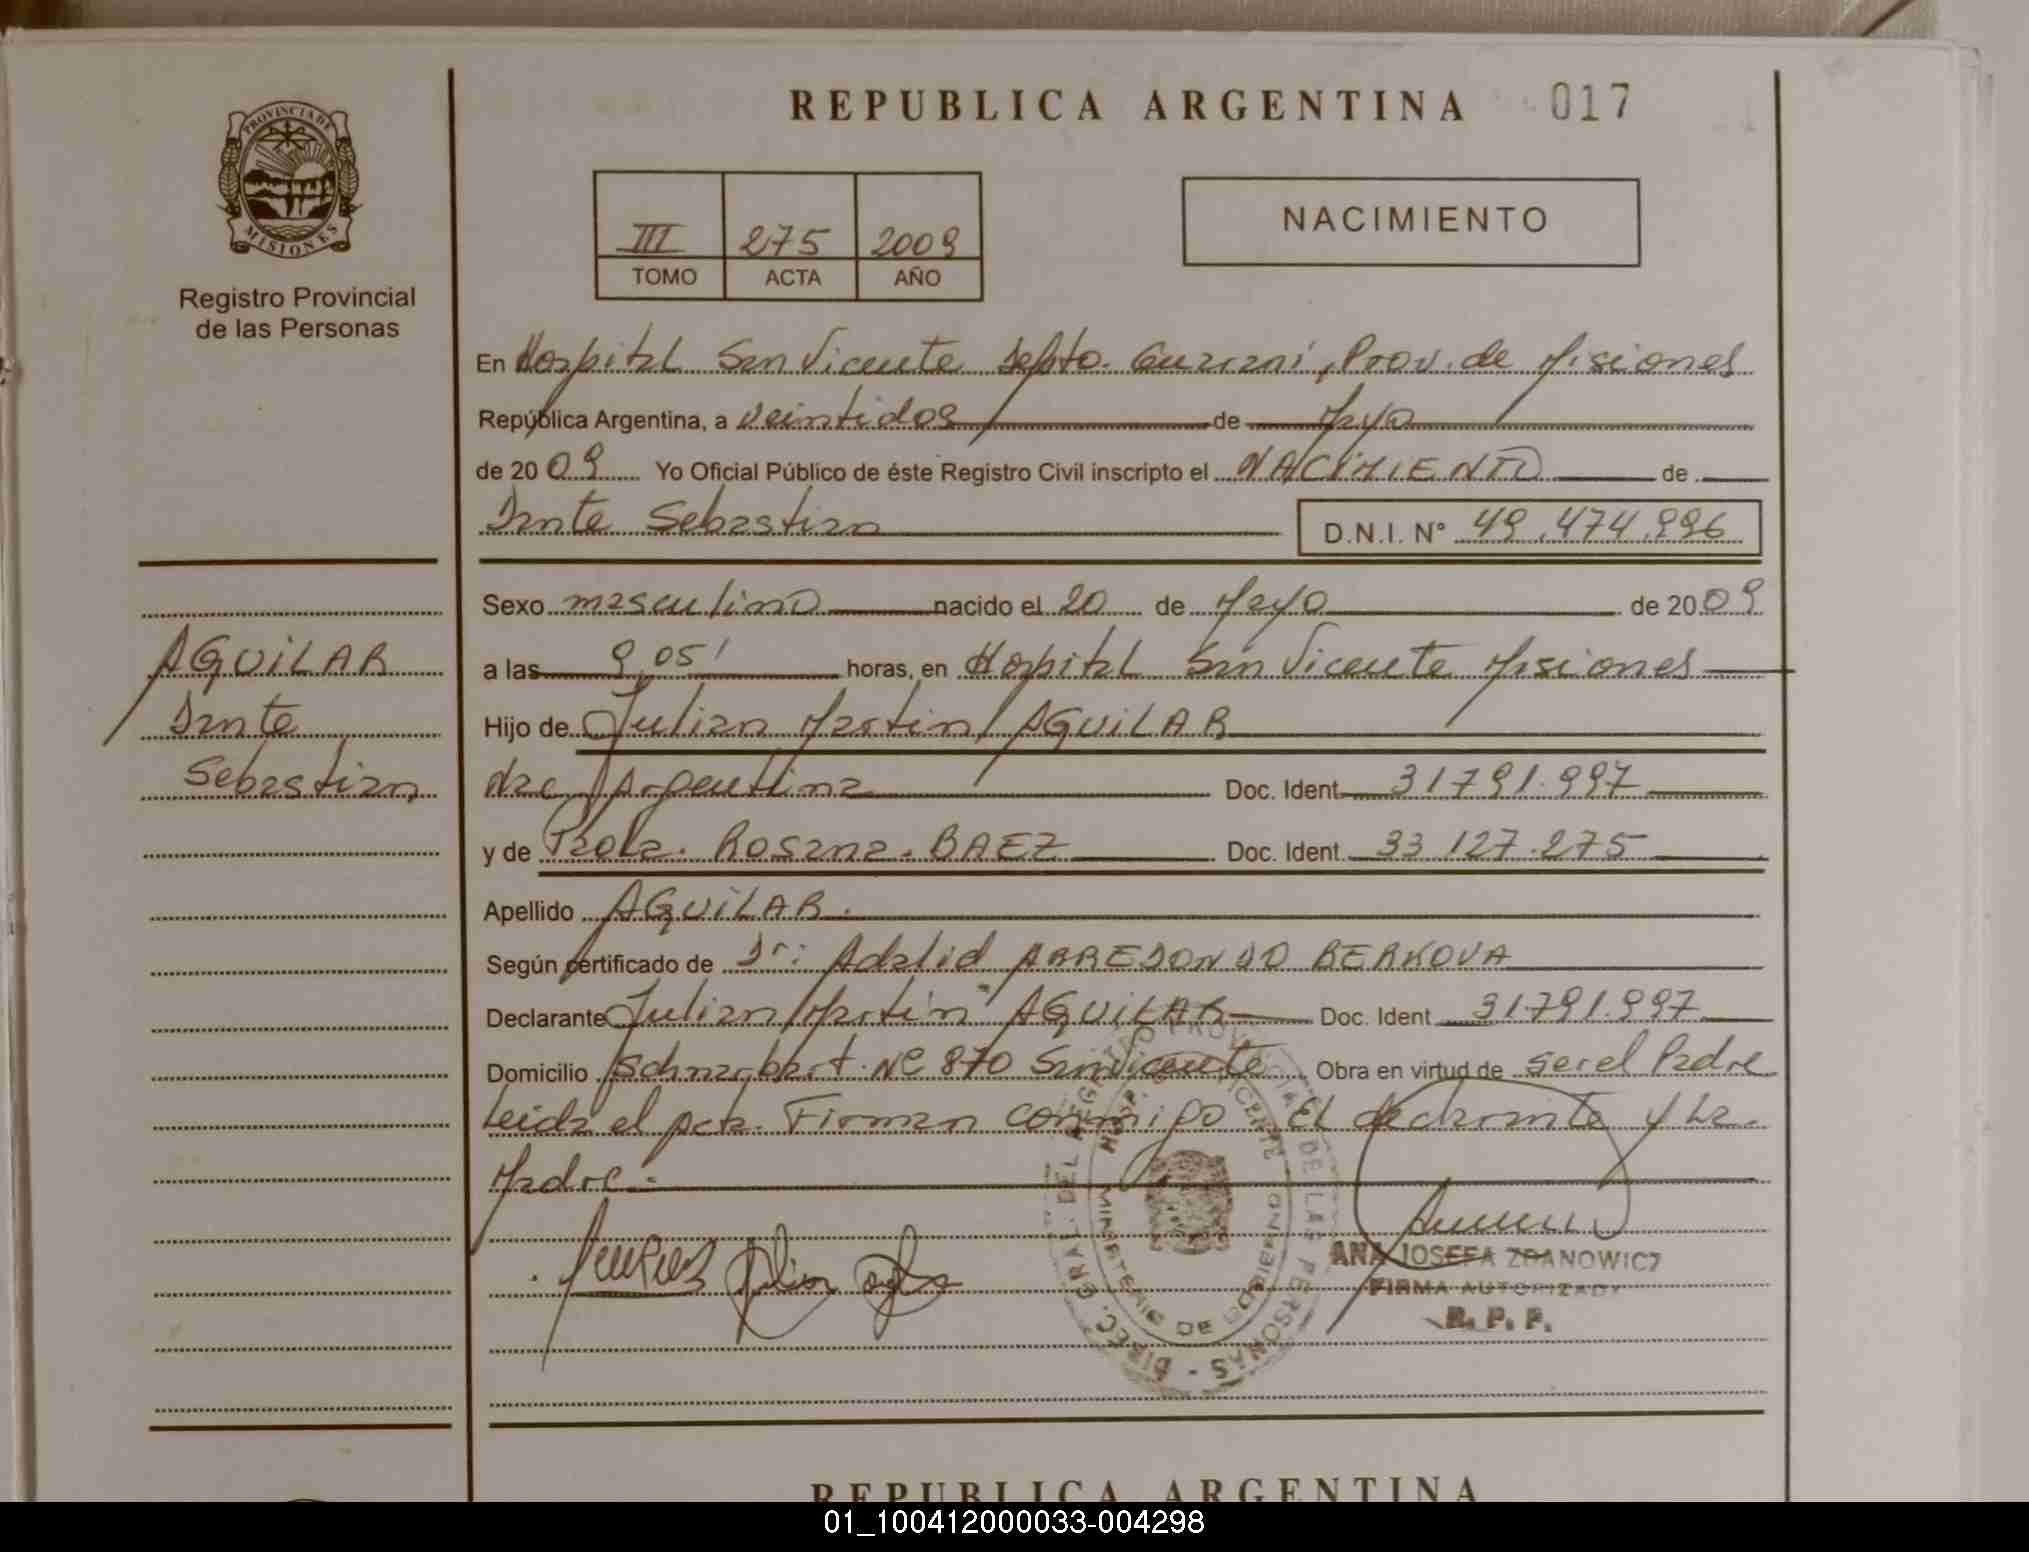 REPUBLICA ARGENTINA 017
PROVINCIA DE
MISIONES
Registro Provincial
de las Personas
III 275 2009
TOMO ACTA AÑO
NACIMIENTO
En Hospital San Vicente Depto. Guarani, Prov. de Misiones
República Argentina, a veintidos de Mayo
de 2009 Yo Oficial Público de éste Registro Civil inscripto el NACIMIENTO de
Dante Sebastian D.N.I. N° 49.474.996
Sexo masculino nacido el 20 de Mayo de 2009
a las 9,05' horas, en Hospital San Vicente Misiones
AGUILAR
Dante
Sebastian
Hijo de Julian Martin AGUILAR
Nac Argentina Doc. Ident. 31791.997
y de Paola. Rosana. BAEZ Doc. Ident. 33.127.275
Apellido AGUILAR.
Según certificado de Dr: Adalid ARREDONDO BERKOVA
Declarante Julian Martin AGUILAR Doc. Ident 31791.997
Domicilio San Vicente Obra en virtud de ser el Padre
Leida el acta. Firman conmigo El declarante y La
Madre.
DIREC. GRAL. DEL REGISTRO PROVINCIAL DE LAS PERSONAS
MINISTERIO DE GOBIERNO
ANA JOSEFA ZDANOWICZ
FIRMA AUTORIZADA
R. P. P.
REPUBLICA ARGENTINA
01_100412000033-004298